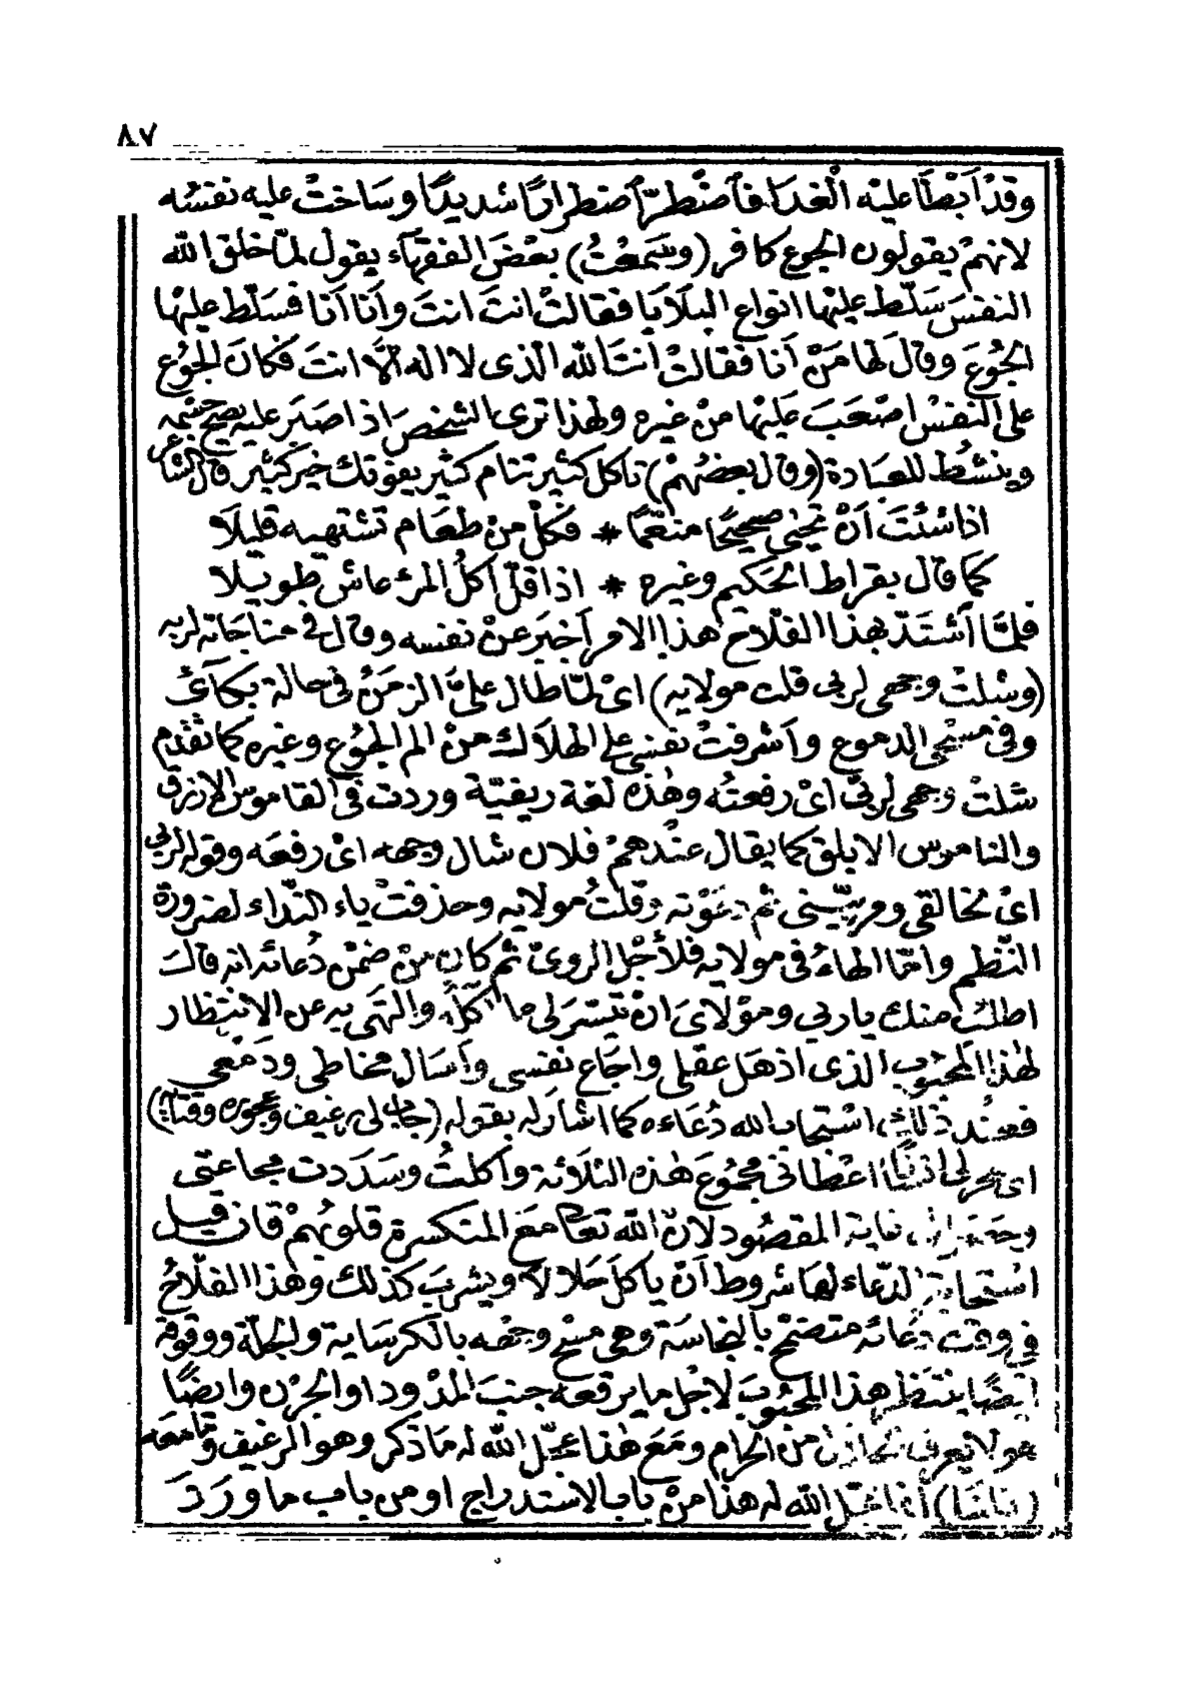 ٨٧
وقدْ اَبْطَأ عليْه الْغدَا فاَضْطرّ اَضطرارًا شديدًا وسَاختْ عليه نفسُه
لانهمْ يقولون الجوع كافر (وسَمعْتُ) بعْضَ الفقهآء يقول لمّا خلق الله
النفسَ سَلّط عليْها انواع البلَايَا فقالتْ انتَ انتَ وأنا أنا فسَلّط عليْها
الجُوعَ وقالَ لها مَنْ أنا فقالتْ أنتَ الله الّذى لا اله الّا انتَ فكانَ الجُوع
على النفسْ اصْعَبَ عَليْها منْ غيره ولهذا ترى الشخصَ اذا صَبَر عليه يصح جسْمه
وينشُط للعبَادة (وقال بعضُهمْ) تاكل كثير تنام كثير يفوتك خير كثير قال الشاعر
اذا شئتَ اَنْ تحيَى صحيحًا منعّمًا * فكلْ منْ طعَام تشتهيه قليلَا
كما قال بقراط الحَكيم وغيره * اذا قلّ أكلُ المرْء عاش طويلا
فلمّا اَشتَدّ بهذا الفلّاح هذا الامر اَخبَر عنْ نفسه وقال فى مناجاته لربه
(وشلتْ وجهى لربى قلت مولايه) اىْ لمّا طال علىّ الزمَنُ فى حالة بكآئ
وفى مسْحى الدموع واَشرفتْ نفسى على الهلَاك منْ الم الجُوع وغيره كما تقدّم
شلتْ وجهى لربىّ اىْ رفعتُه وهذه لغة ريفيّة وردت فى القاموس الازرق
والناموس الابلق كما يقال عنْدهمْ فلان شال وجهه اىْ رفعَه وقوله لربى
اىْ لخالقى ومربّينى ثم دَعَوْته وقلتُ مولايه وحذفتْ ياء النّداء لضرورة
النّظم وامّا الهاءُ فى مولايه فلأجْل الروىّ ثم كان منْ ضمْن دُعائه انه قالَ
اطلبُ منك ياربى ومؤلاىَ انْ تيسَر لى ما اكله والتهَى به عن الانتظار
لهذا المحبُوب الذى اذهَل عقلى واجَاع نفسى وأسَال مخاطى ودَمْعى
فعنْد ذلك اسْتجاب الله دُعَاءه كما اشار له بقوله (جاب لى رغيف وعجوره وقتايه)
اى سخر لى انسانا اعْطانى مجمُوعَ هذه الثلاثة وأكلتُ وسَدَدت مجاعتى
وحصَل لى غاية المقصُود لانّ الله تعالى معَ المنكسرة قلوبُهمْ فان قيل
اسْتجابة الدعاء لهَا شروط اَنْ ياكلَ حَلالًا ويشربَ كذلك وهذا الفلّاحُ
فى وقت دُعائه متضمّخ بالنجَاسَة وهى مسْح وجهه بالكرسَاية ولجلّة ووقوفه
ايضًا ينتظر هذا المحْبُوبَ لاجْل ما يرقعه جنبَ المدْود او الجرْن وايضًا
هو لا يعرف الحَلالَ منَ الحرام ومَعَ هذا عجّل الله له مَا ذكر وهو الرغيف وما معَه
(قلنَا) اَنما عجّل الله له هذا منْ بابِ الاستدراج او من باب ما ورَدَ